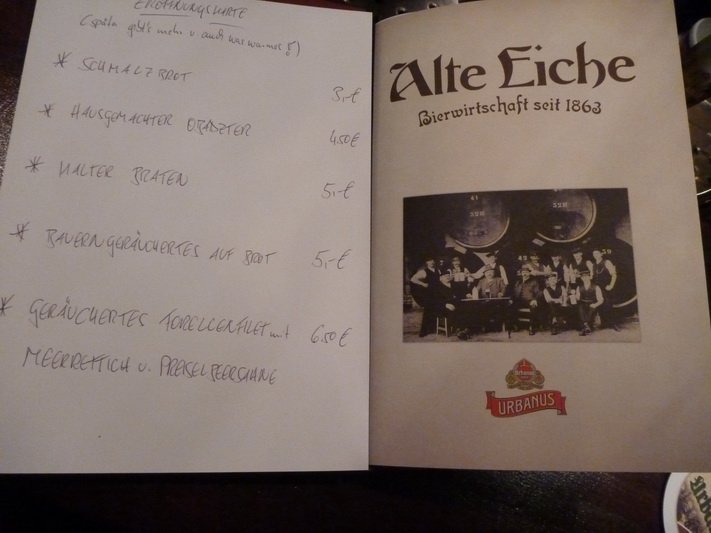 ERÖFFNUNGSKARTE
(später gibt's mehr u. auch was warmes!)
* SCHMALZBROT 3,-€
* HAUSGEMACHTER OBAZTER 4.50€
* KALTER BRATEN 5,-€
* BAUERNGERÄUCHERTES AUF BROT 5,-€
* GERÄUCHERTES FORELLENFILET mit 6.50€
MEERRETTICH u. PREISELBEERSAHNE
Alte Eiche
Bierwirtschaft seit 1863
Urbanus
URBANUS